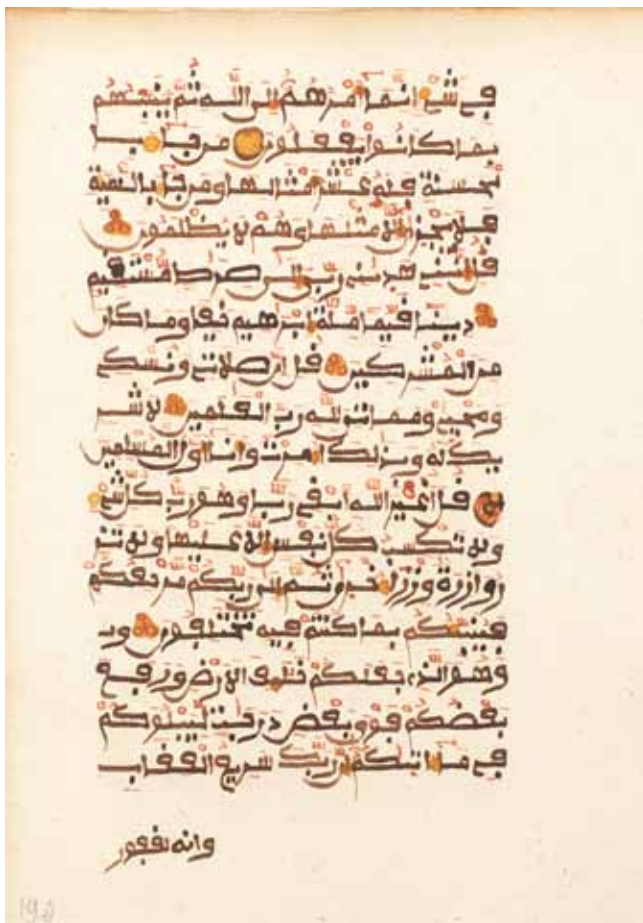 في شيء انما امرهم الى الله ثم ينبئهم
بما كانوا يفعلون من جاء با
لحسنة فله عشر امثالها ومن جاء بالسيئة
فلا يجزى الا مثلها وهم لا يظلمون
قل انني هدىني ربي الى صراط مستقيم
دينا قيما ملة ابرهيم حنيفا وما كان
من المشركين قل ان صلاتي ونسكي
ومحياي ومماتي لله رب العلمين لا شر
يك له وبذلك امرت وانا اول المسلمين
قل اغير الله ابغي ربا وهو رب كل شيء
ولا تكسب كل نفس الا عليها ولا تز
ر وازرة وزر اخرى ثم الى ربكم مرجعكم
فينبئكم بما كنتم فيه تختلفون
وهو الذي جعلكم خلئف الارض ورفع
بعضكم فوق بعض درجت ليبلوكم
في ما اتىكم ان ربك سريع العقاب
وانه لغفور